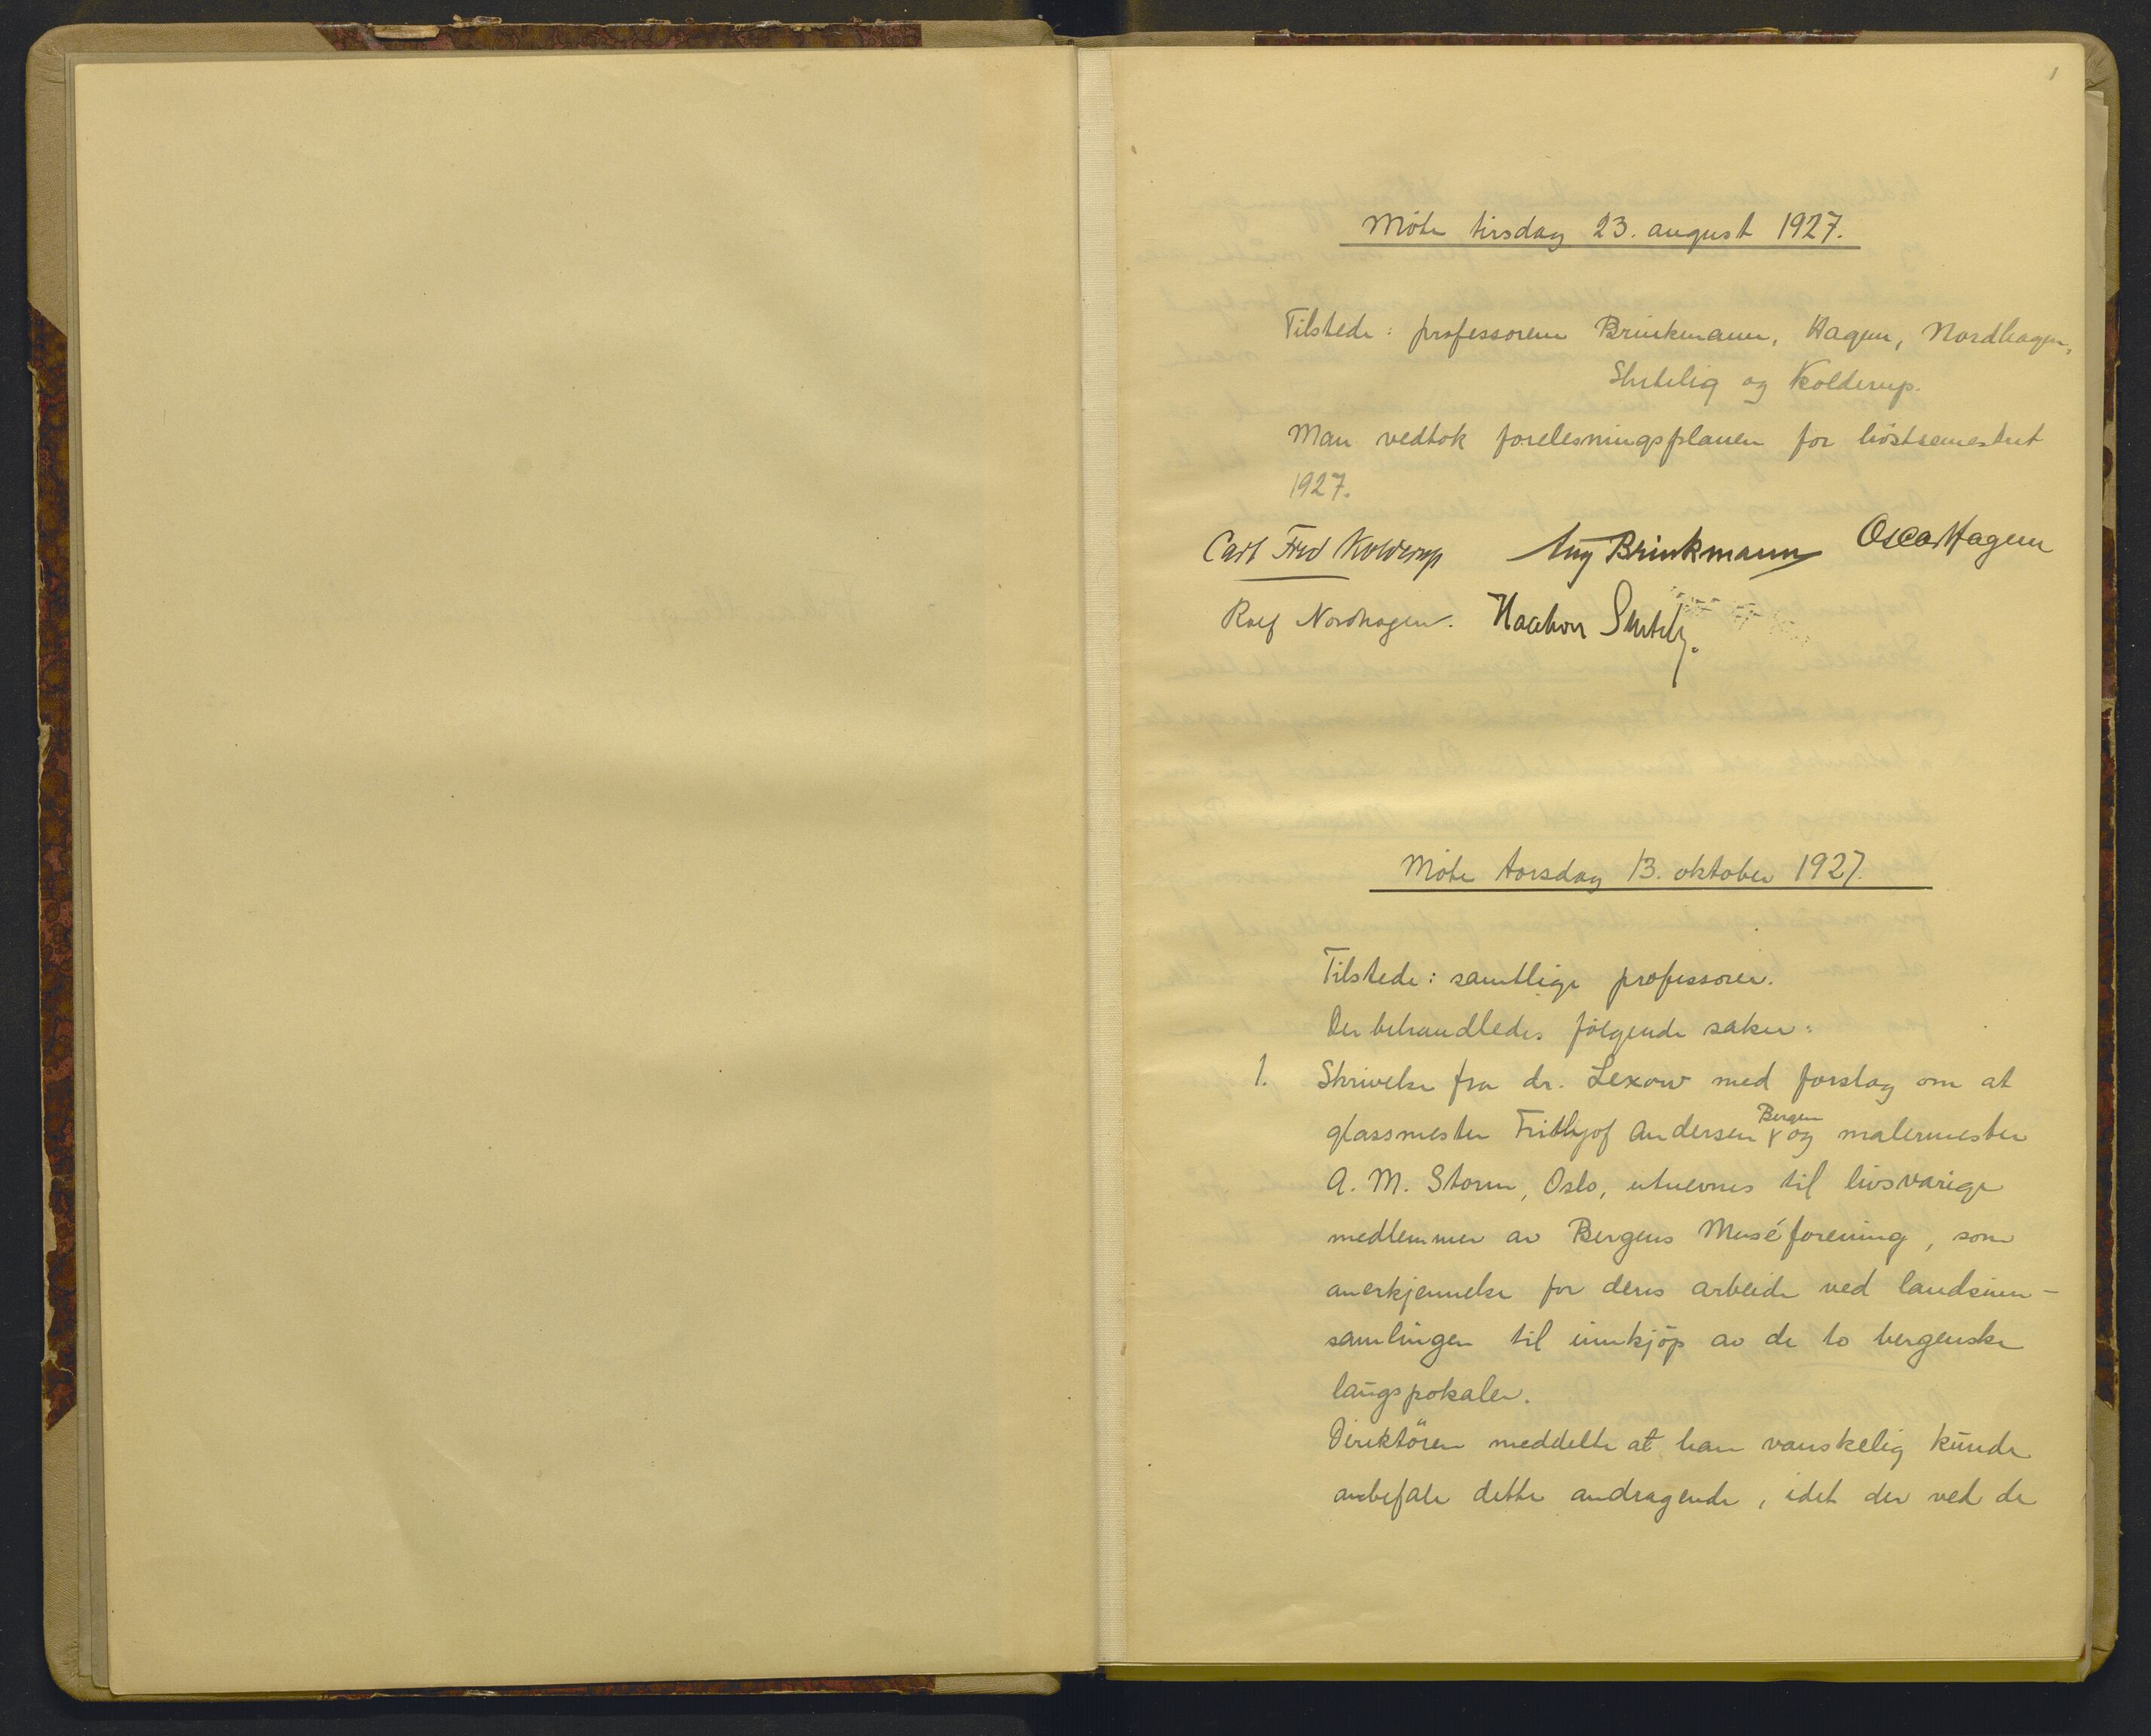 1
Möte tirsdag 23. august 1927.
Tilstede: professorene Brinkmann, Hagem, Nordhagen,
Shetelig og Kolderup.
Man vedtok forelesningsplanen for höstsemestret
1927.
Carl Fred Kolderup Aug Brinkmann Oscar Hagem
Rolf Nordhagen. Haakon Shetelig.
Möte torsdag 13. oktober 1927.
Tilstede: samtlige professorer.
Der behandledes fölgende saker:
1. Skrivelse fra dr. Lexow med forslag om at
glassmester Frithjof Andersen Bergen og malermester
A. M. Storm, Oslo, utnevnes til livsvarige
medlemmer av Bergens Muséforening, som
anerkjennelse for deres arbeide ved landsinn-
samlingen til innkjöp av de to bergenske
laugspokaler.
Direktören meddelte at han vanskelig kunde
anbefale dette andragende, idet der ved de